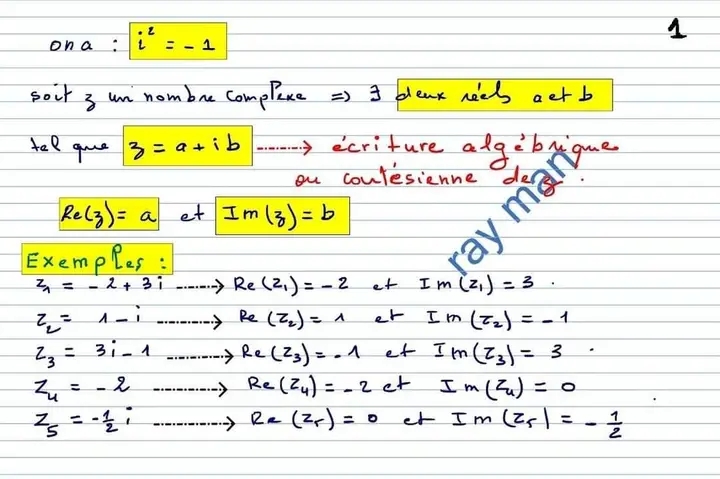 1
on a : i² = -1
soit z un nombre complexe => ∃ deux réels a et b
tel que z = a + i b --------> écriture algébrique
ou cartésienne de z .
Re(z) = a et Im(z) = b
ray man
Exemples :
z₁ = -2 + 3i --------> Re(z₁) = -2 et Im(z₁) = 3 .
z₂ = 1 - i --------> Re(z₂) = 1 et Im(z₂) = -1
z₃ = 3i - 1 --------> Re(z₃) = -1 et Im(z₃) = 3 .
z₄ = -2 --------> Re(z₄) = -2 et Im(z₄) = 0
z₅ = -1/2 i --------> Re(z₅) = 0 et Im(z₅) = - 1/2